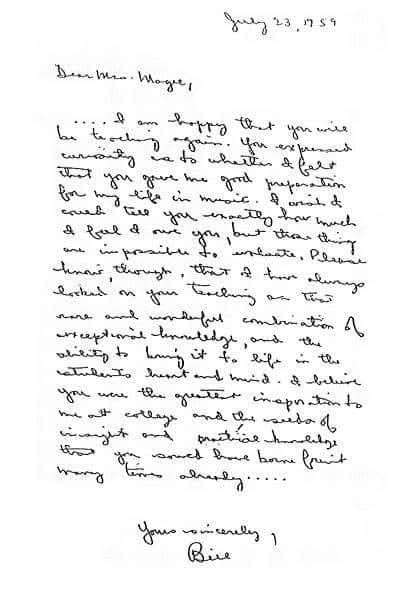 July 23, 1959
Dear Mrs. Magee,
.... I am happy that you will
be teaching again. You expressed
curiosity as to whether I felt
that you gave me good preparation
for my life in music. I wish I
could tell you exactly how much
I feel I owe you, but those things
are impossible to evaluate. Please
know, though, that I have always
looked on your teaching as that
rare and wonderful combination of
exceptional knowledge, and the
ability to bring it to life in the
students heart and mind. I believe
you were the greatest inspiration to
me at college and the seeds of
insight and practical knowledge
that you sowed have borne fruit
many times already.....
Yours sincerely,
Bill